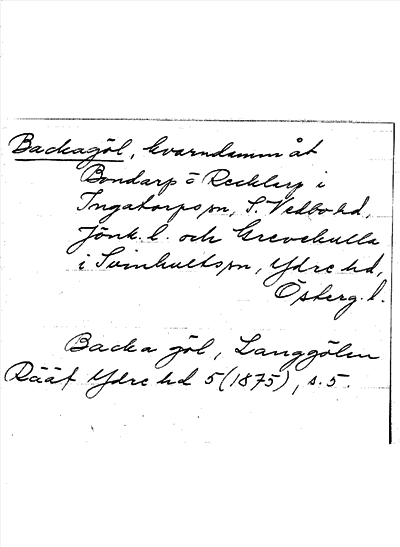 Backagöl, kvarndamm åt
Bondarp o Recklarp i
Ingatorps sn, S. Vedbo hd,
Jönk. l. och Grevekulla
i Svinhults sn, Ydre hd,
Österg. l.
Backa göl, Långgölen
Rääf Ydre hd 5 (1875), s. 5.